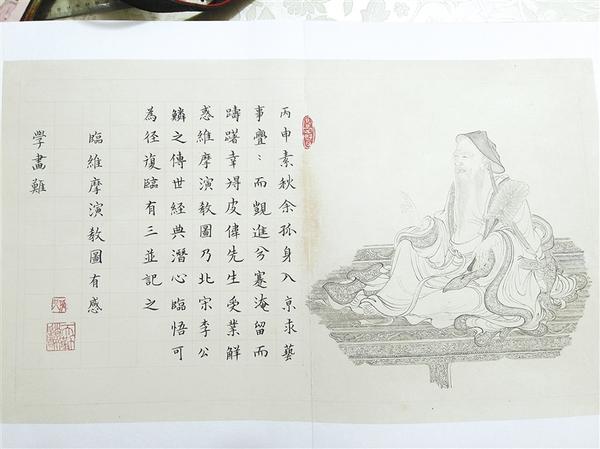 丙申素秋余孤身入京求藝
事亹：而覬進兮蹇淹留而
躊躇幸淂皮偉先生受業觧
惑維摩演教圖乃北宋李公
鱗之傳世經典潛心臨悟可
為徑復臨有三並記之
臨維摩演教圖有感
學畫難